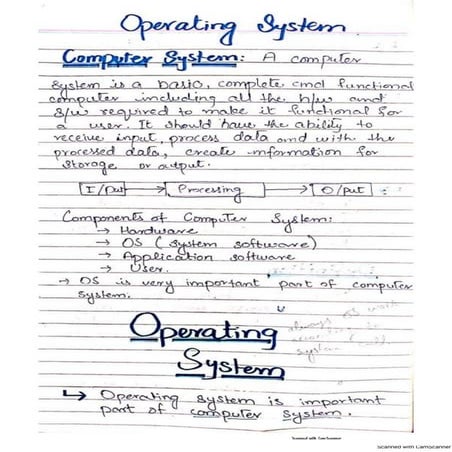 Operating System
Computer System: A computer
system is a basic, complete and functional
computer including all the h/w and
s/w required to make it functional for
a user. It should have the ability to
receive input, process data and with the
processed data, create information for
storage or output.
I/Put → Processing → O/put
Components of Computer System:
→ Hardware
→ OS (system software)
→ Application software
→ User.
→ OS is very important part of computer
system.
Operating
System
↳ Operating system is important
part of computer system.
Scanned with CamScanner
Scanned with CamScanner